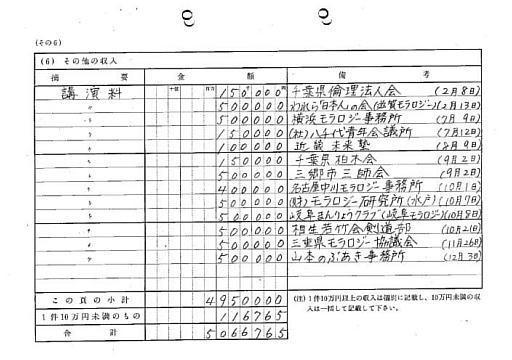 (その6)
(6) その他の収入
摘要 金額 備考
講演料 150000 千葉県倫理法人会 (2月8日)
〃 500000 われら日本人の会(滋賀モラロジー)(2月13日)
〃 500000 横浜モラロジー事務所 (7月9日)
〃 150000 (社)八千代青年会議所 (7月12日)
〃 100000 未来塾 (8月9日)
〃 150000 千葉県柏木会 (9月2日)
〃 500000 三郷市三師会 (9月2日)
〃 400000 名古屋中川モラロジー事務所 (10月1日)
〃 500000 (財)モラロジー研究所(水戸) (10月7日)
〃 500000 岐阜まんりょうクラブ(岐阜モラロジー)(10月8日)
〃 500000 相生若竹会剣道部 (10月21日)
〃 500000 三重県モラロジー協議会 (11月26日)
〃 500000 山本のぶあき事務所 (12月3日)
この頁の小計 4950000
1件10万円未満のもの 116765
合計 5066765
(注) 1件10万円以上の収入は個別に記載し、10万円未満の収
入は一括して記載して下さい。